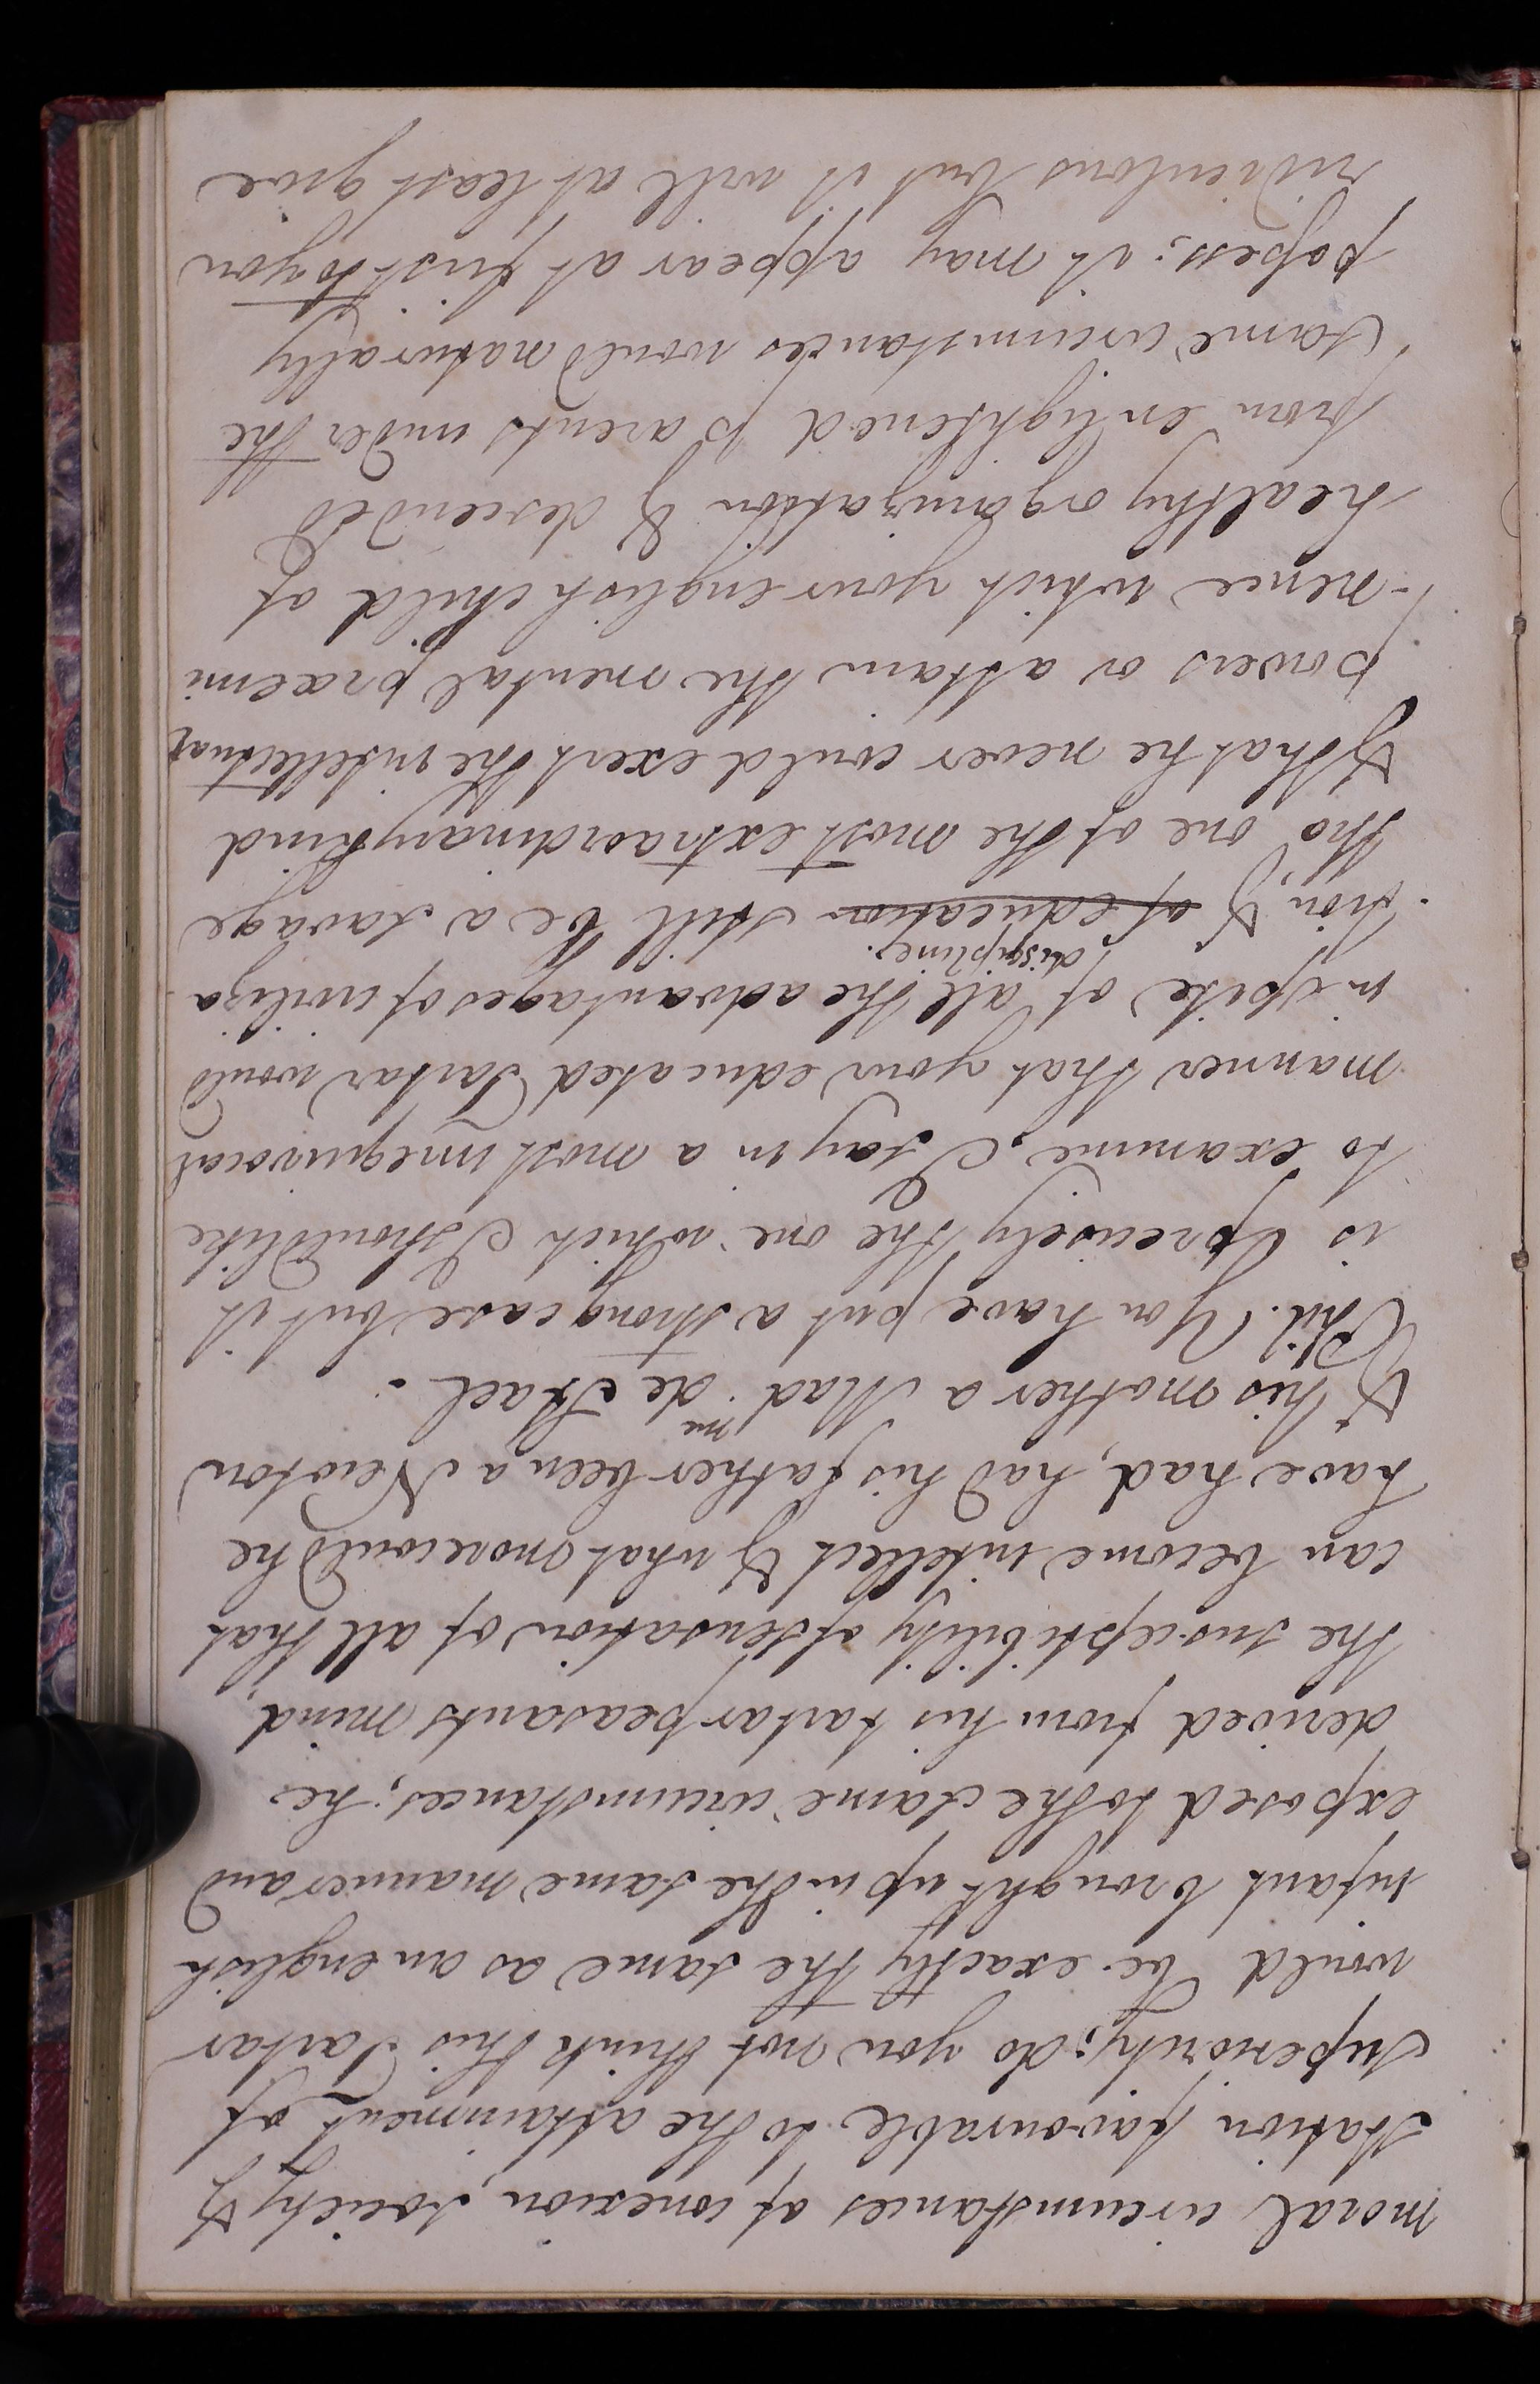 moral circumstances of conexion, society &
station favourable to the attainment of
superiority; do you not think this Tartar
would be exactly the same as an english
infant brought up in the same manner and
exposed to the same circumstances; he
derived from his tartar peasants mind,
the susceptibility of sensation of all that
can become intellect & what more could he
have had, had his father been a Newton
& his mother a Mad.me de Stael.
Phil. You have put a strong case but it
is precisely the one which I should like
to examine. I say in a most unequivocal
manner that your educated Tartar would
in spite of all the advantages of civiliza
discipline
-tion, & of education still be a savage
tho' one of the most extraordinary kind
& that he never could exert the intellectual
powers or attain the mental præemi
-nence which your english child of
healthy organization & descended
from enlightened parents under the
same circumstances would naturally
possess; it may appear at first to you
ridiculous but it will at least give